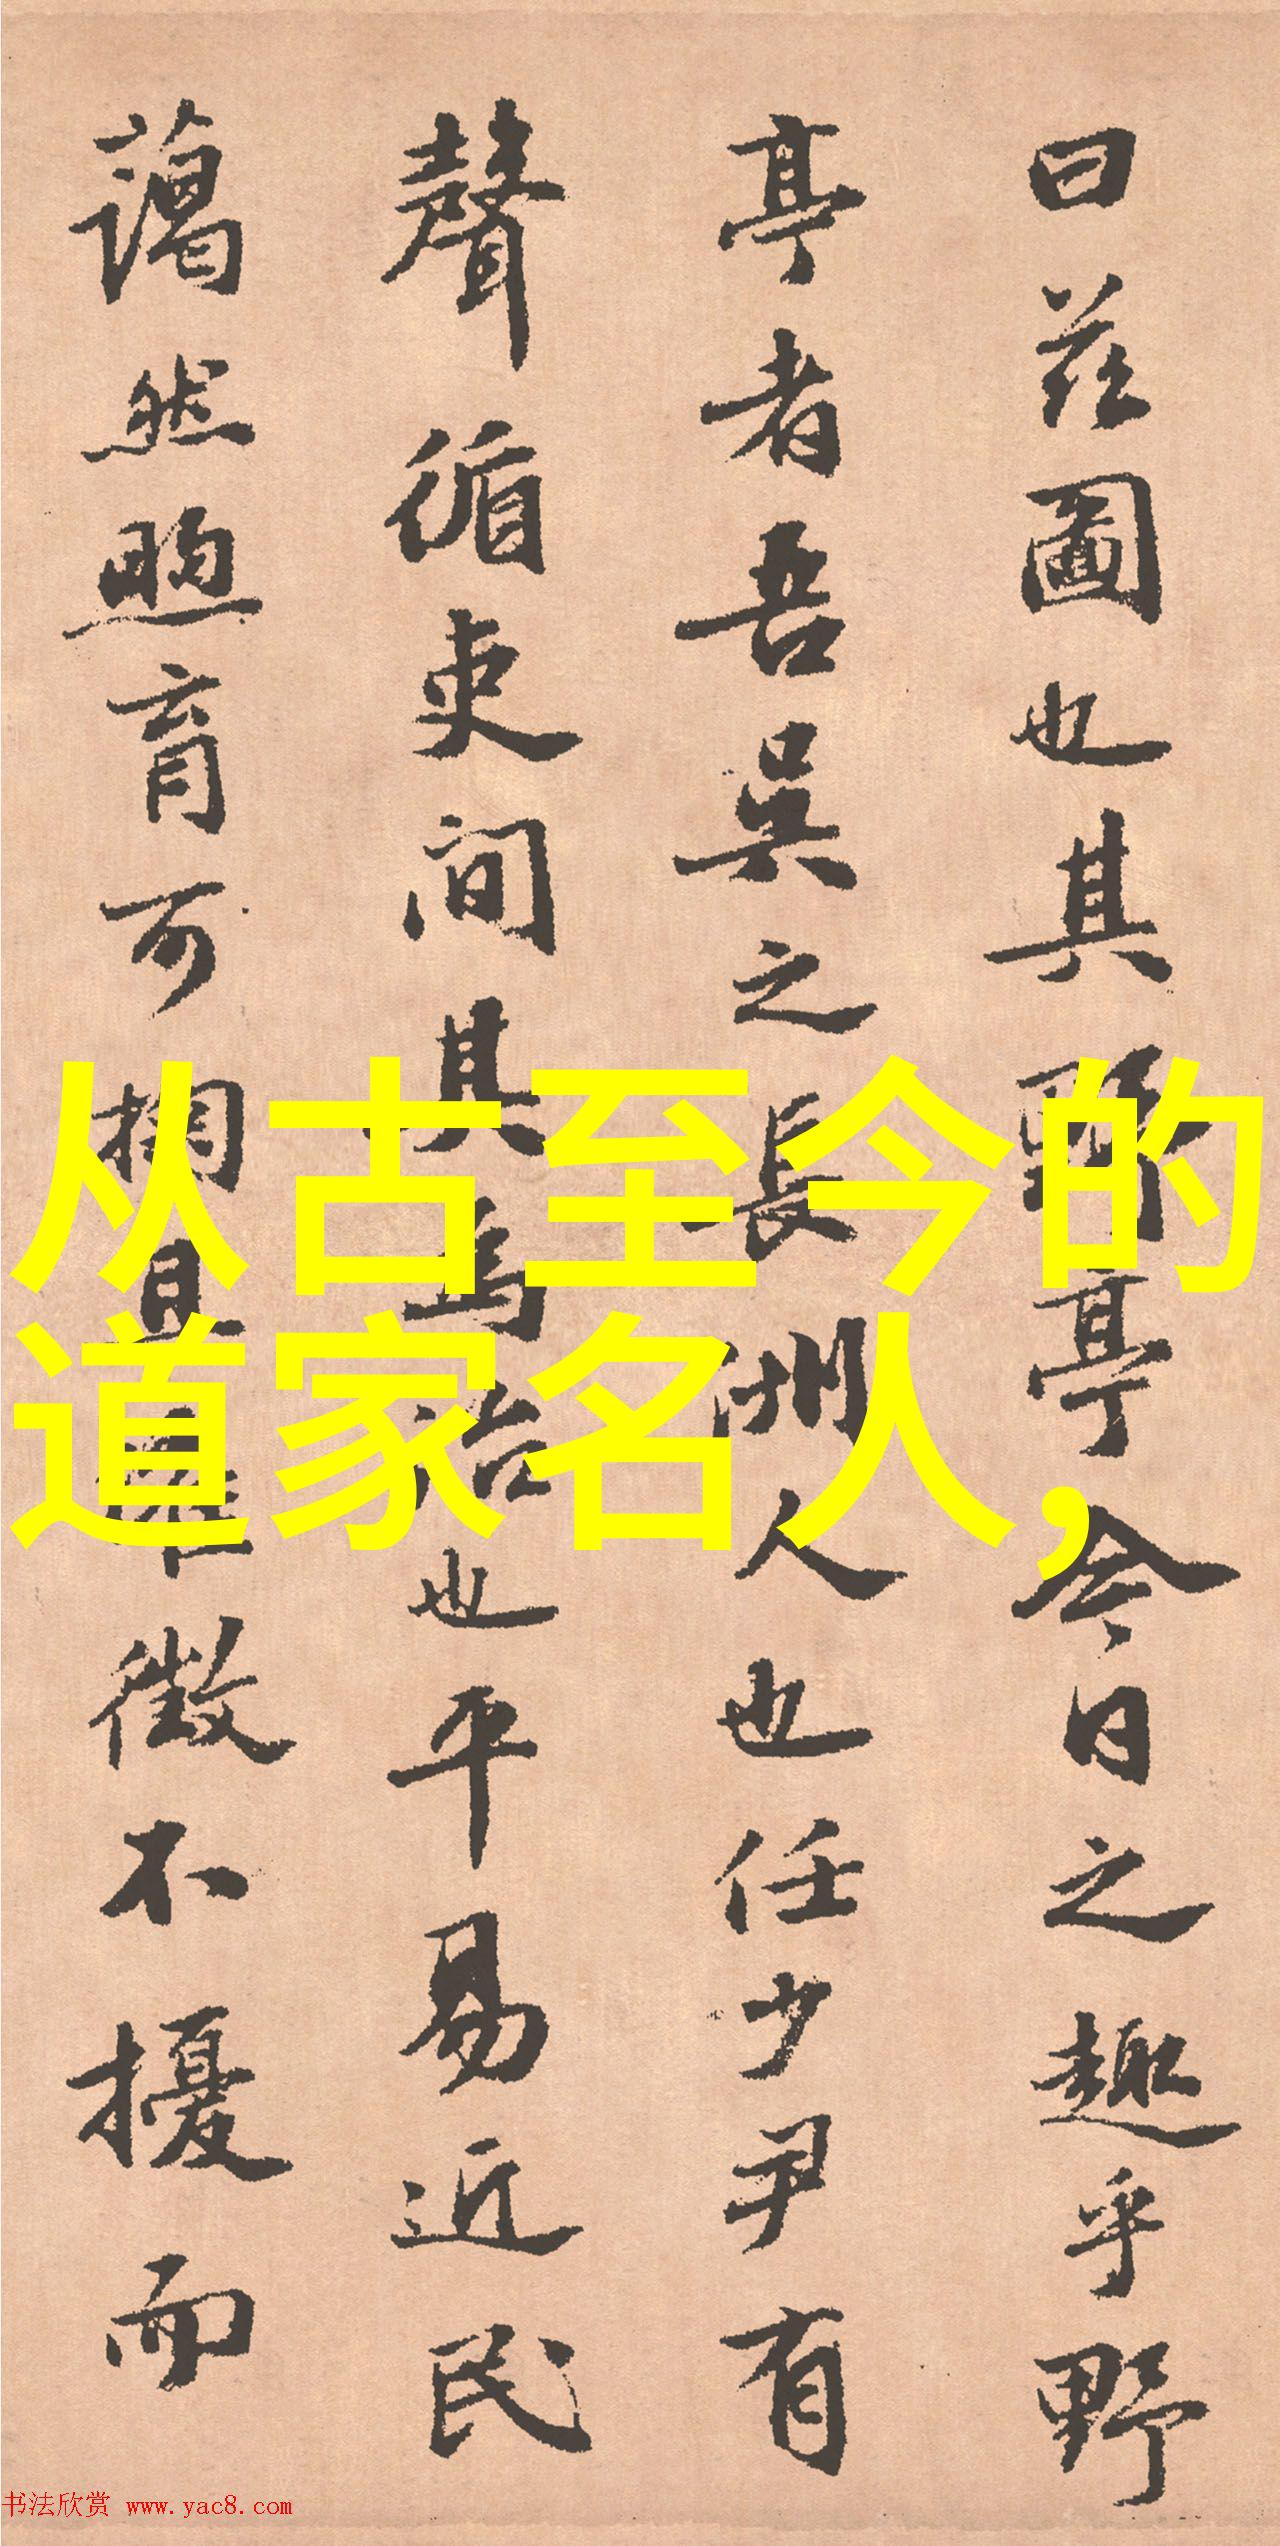 曰茲圖也其野亭今日之趣乎野
亭者吾吳之長洲人也任少尹有
聲循吏間其為治也平易近民
藹然煦育可掬且 徵不擾而
从古至今的
道家名人，
书法欣赏 www.yac8.com